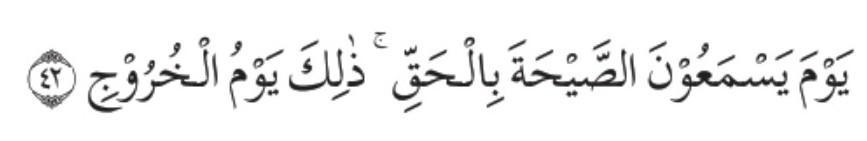 يَوْمَ يَسْمَعُوْنَ الصَّيْحَةَ بِالْحَقِّ ۚ ذٰلِكَ يَوْمُ الْخُرُوْجِ ٤٢